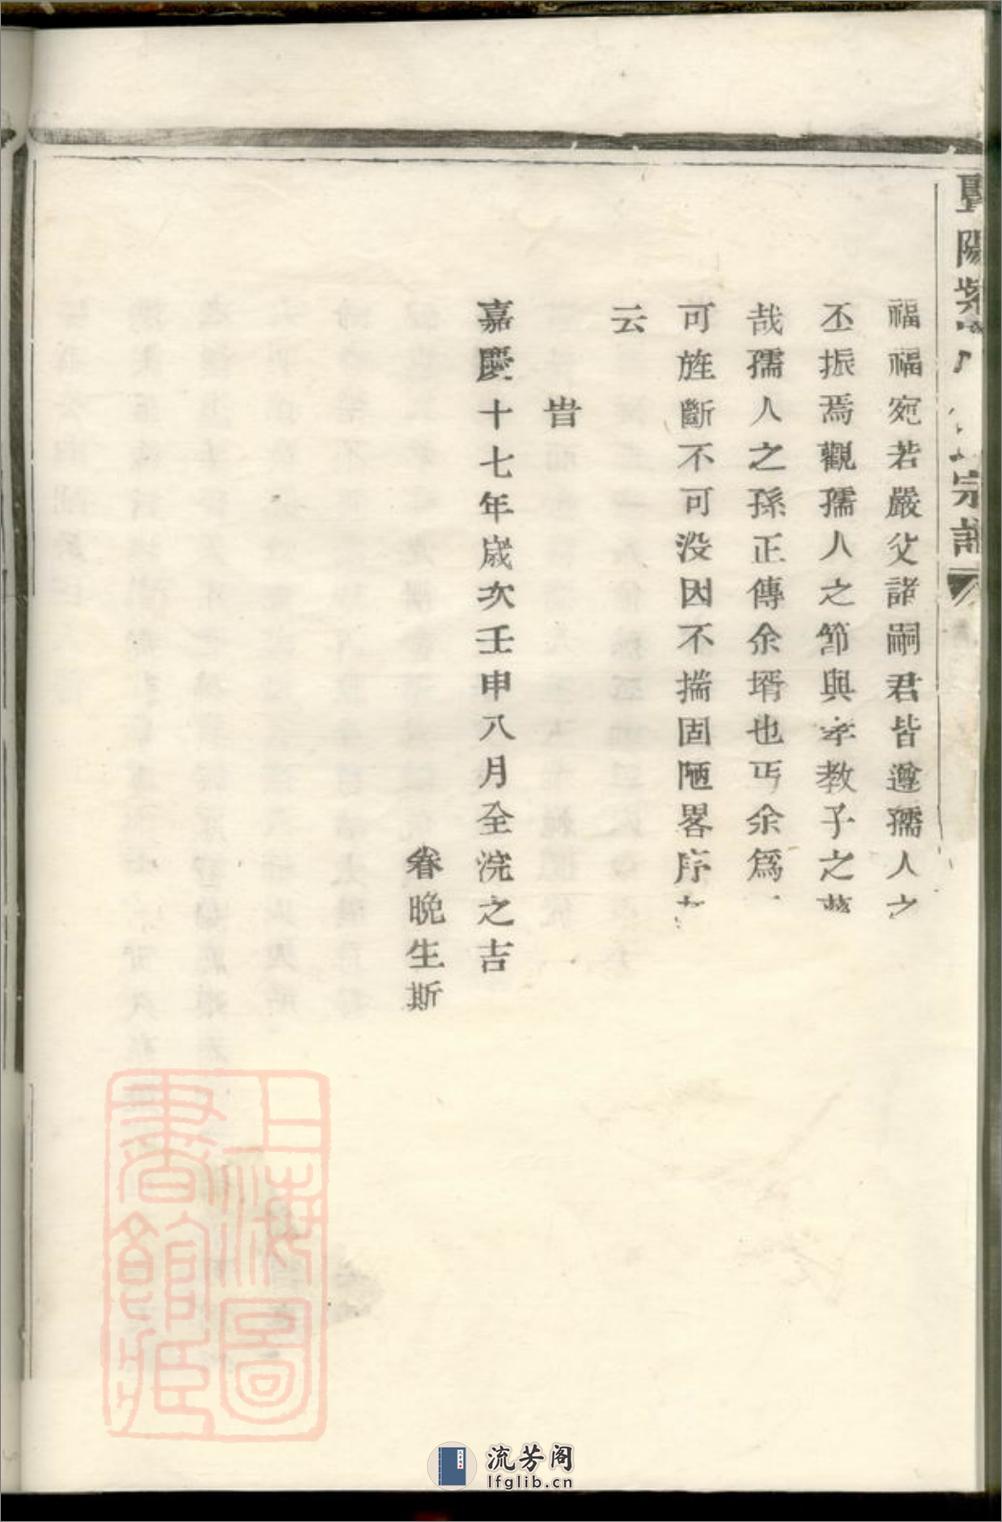 陽紫
宗譜
福福宛若嚴父諸嗣君皆遵孺人之
丕振焉觀孺人之節與孝教子之
哉孺人之孫正傳余壻也丐余爲
可旌斷不可没因不揣固陋畧序
云
旹
嘉慶十七年歲次壬申八月全浣之吉
眷晚生斯
上海圖書館藏
流芳阁
lfglib.cn